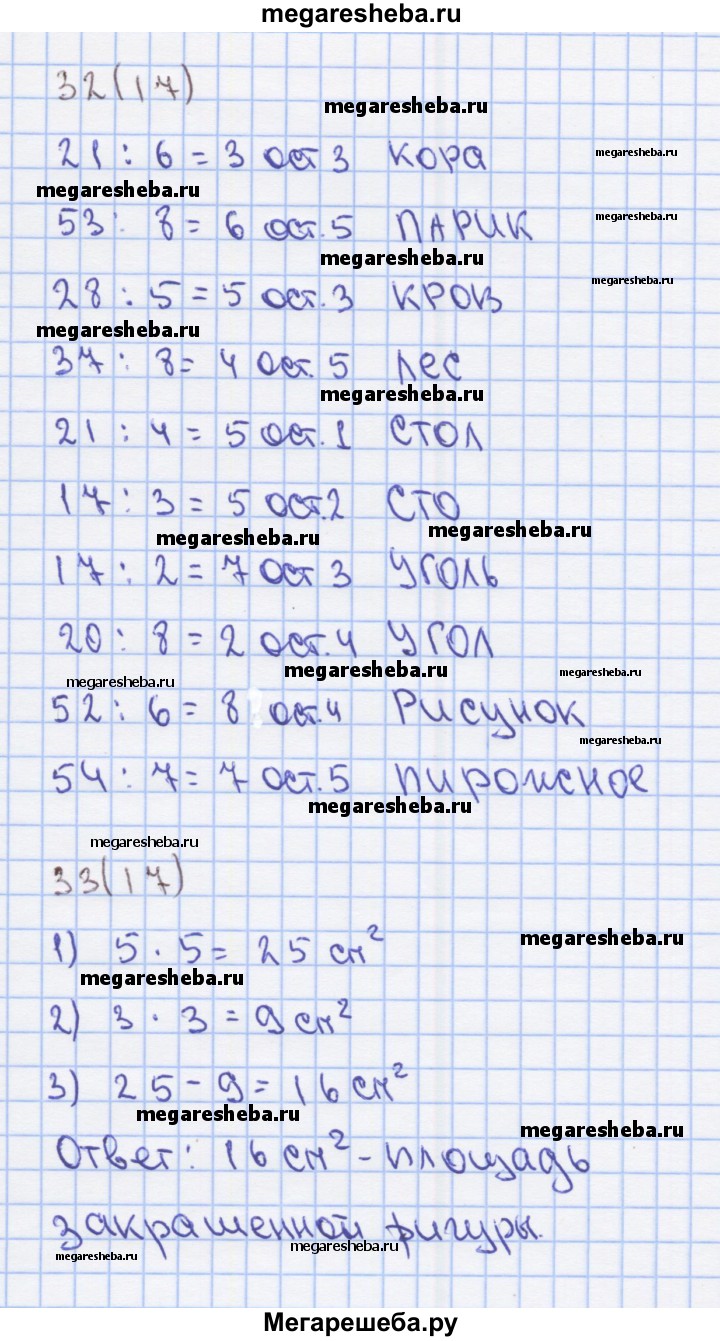 megaresheba.ru
32(17)
megaresheba.ru
21 : 6 = 3 ост 3 КОРА
megaresheba.ru
megaresheba.ru
53 : 8 = 6 ост. 5 ПАРИК
megaresheba.ru
megaresheba.ru
28 : 5 = 5 ост. 3 КРОВ
megaresheba.ru
megaresheba.ru
37 : 8 = 4 ост. 5 ЛЕС
megaresheba.ru
21 : 4 = 5 ост. 1 СТОЛ
17 : 3 = 5 ост. 2 СТО
megaresheba.ru
megaresheba.ru
17 : 2 = 7 ост 3 УГОЛЬ
20 : 8 = 2 ост. 4 УГОЛ
megaresheba.ru
megaresheba.ru
megaresheba.ru
52 : 6 = 8 ост. 4 РИСУНОК
megaresheba.ru
54 : 7 = 7 ост. 5 ПИРОЖНОЕ
megaresheba.ru
megaresheba.ru
33(17)
1) 5 · 5 = 25 см²
megaresheba.ru
megaresheba.ru
2) 3 · 3 = 9 см²
3) 25 - 9 = 16 см²
megaresheba.ru
megaresheba.ru
Ответ: 16 см² - площадь
закрашенной фигуры.
megaresheba.ru
megaresheba.ru
Мегарешеба.ру